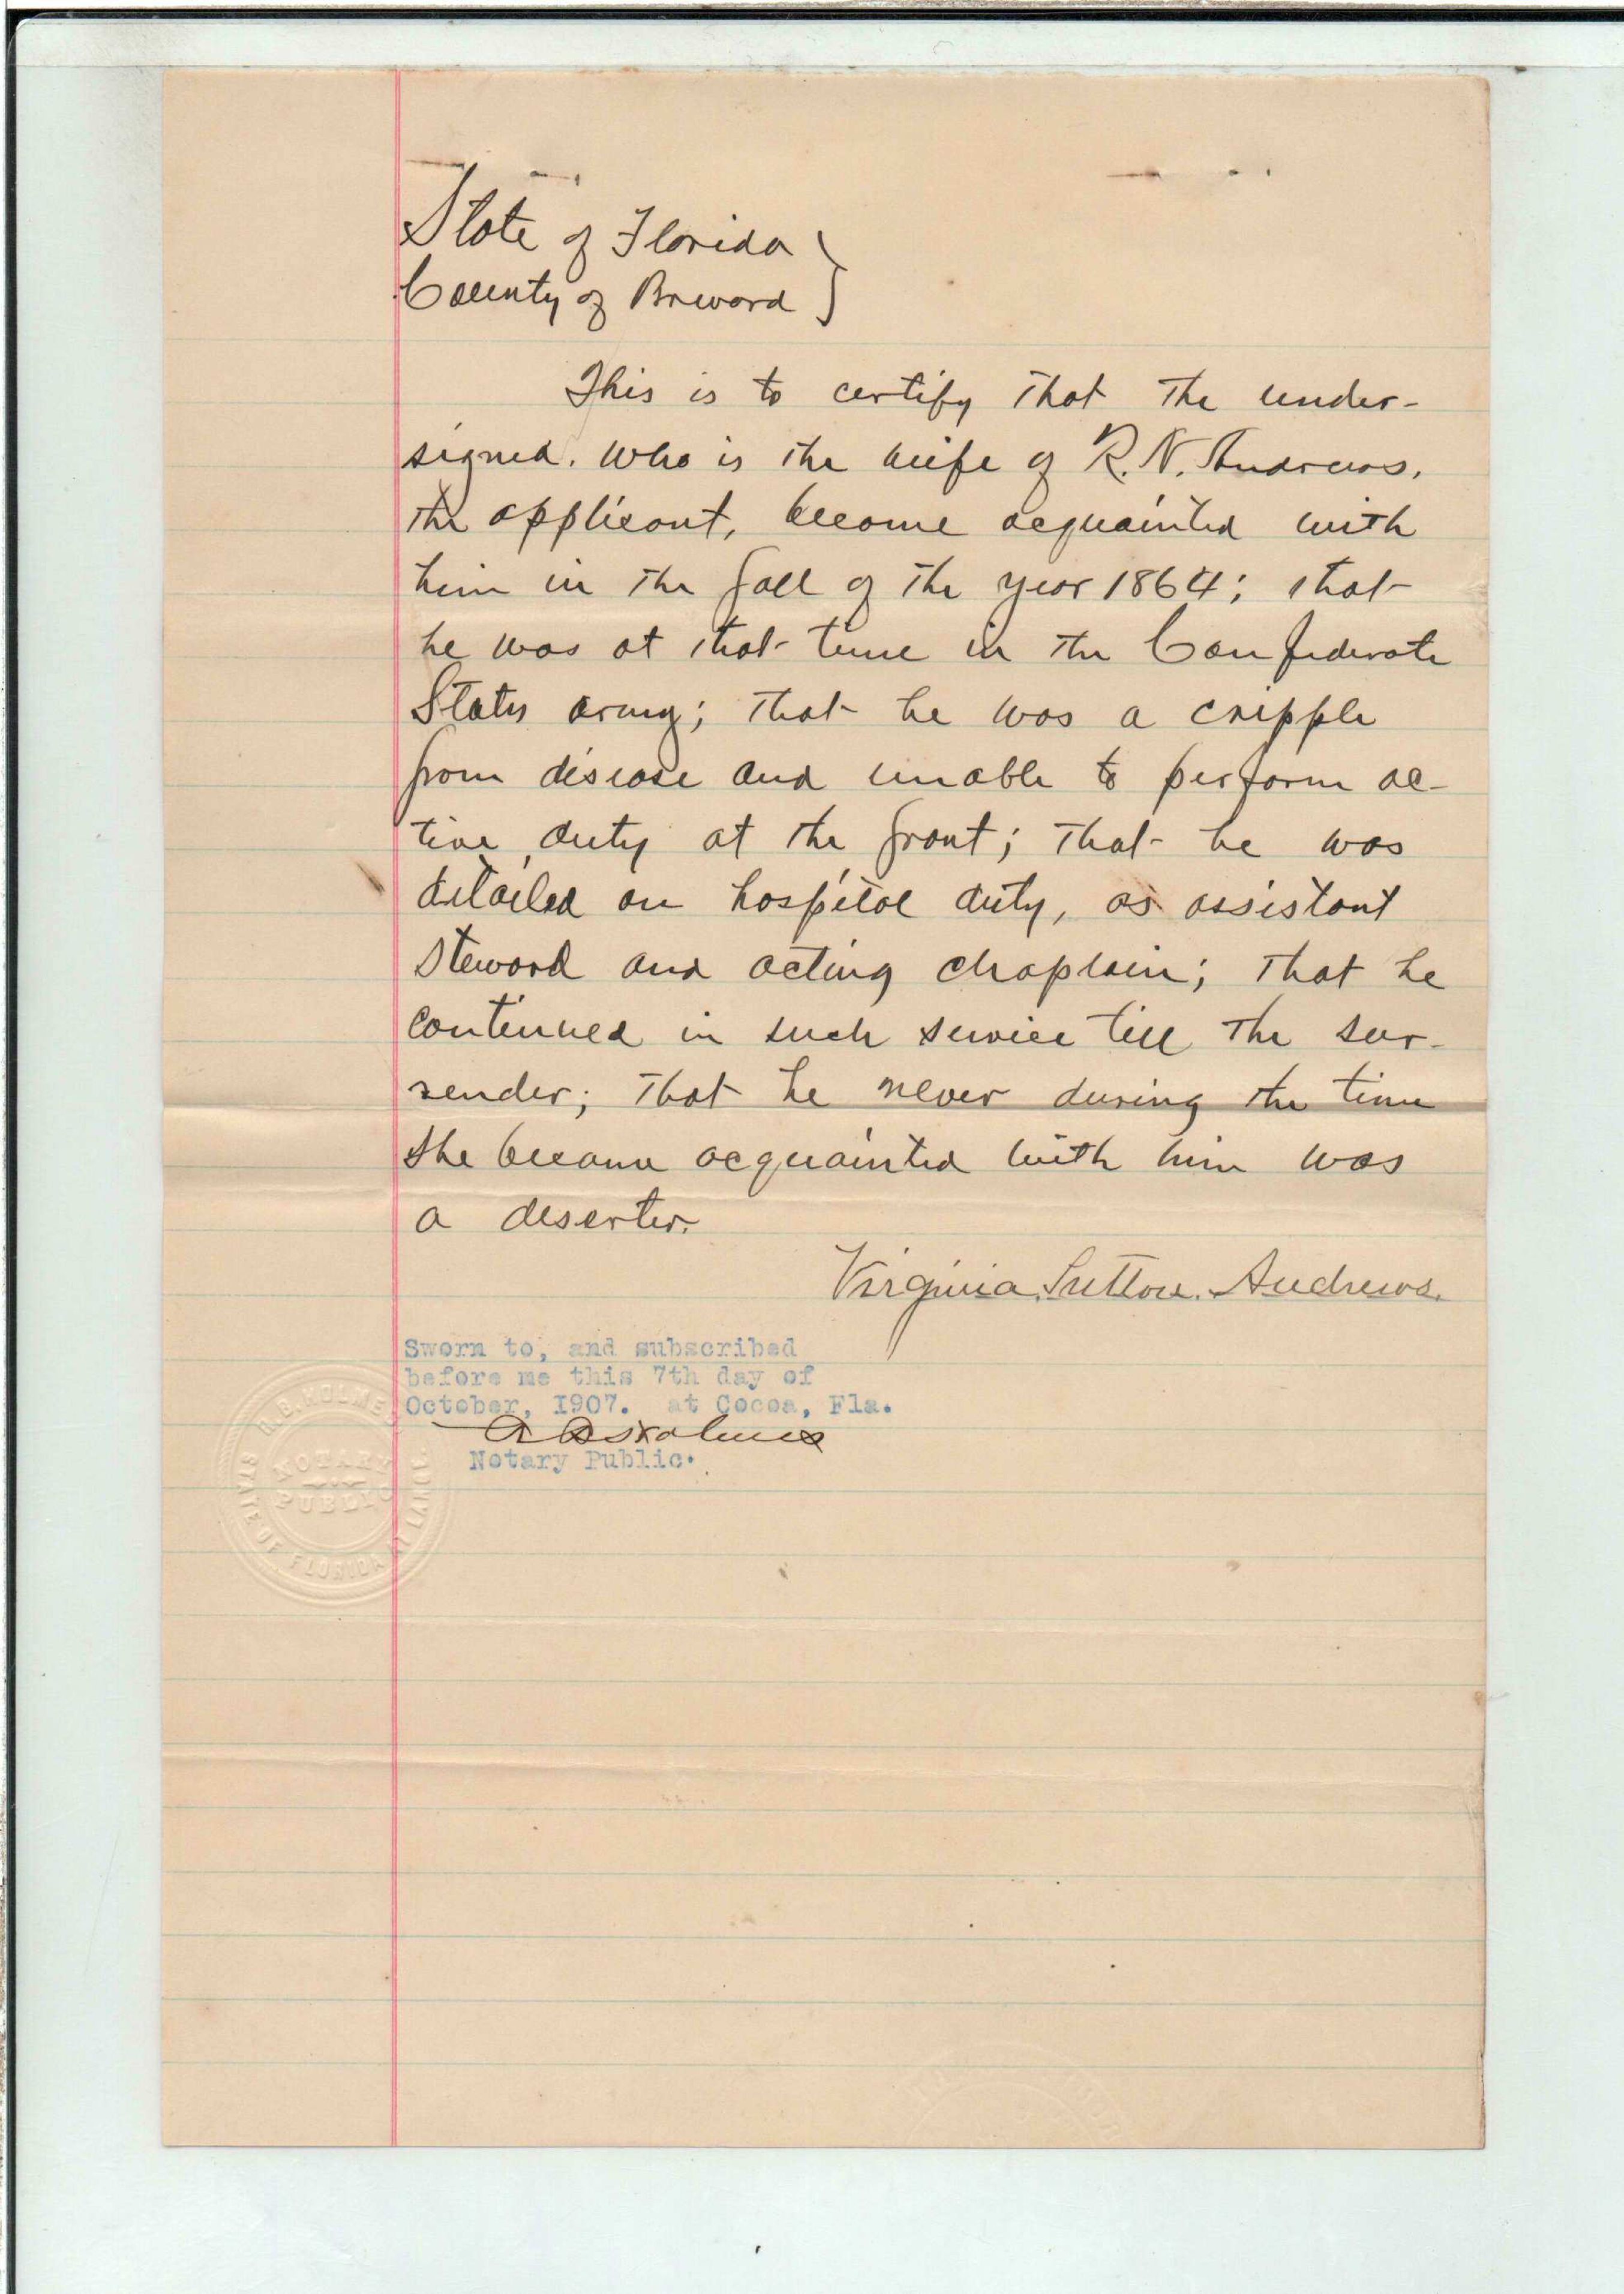 State of Florida }
County of Brevard }
This is to certify that the under-
signed. who is the wife of R. N. Andrews,
the applicant, became acquainted with
him in the fall of the year 1864; that
he was at that time in the Confederate
States army; that he was a cripple
from disease and unable to perform ac-
tive duty at the front; that he was
detailed on hospital duty, as assistant
steward and acting chaplain; that he
continued in such service till the sur-
render; that he never during the time
she became acquainted with him was
a deserter.
Virginia Sutton Andrews.
Sworn to, and subscribed
before me this 7th day of
October, 1907. at Cocoa, Fla.
Notary Public.
HOLMES
NOTARY
PUBLIC
STATE OF FLORIDA AT LARGE